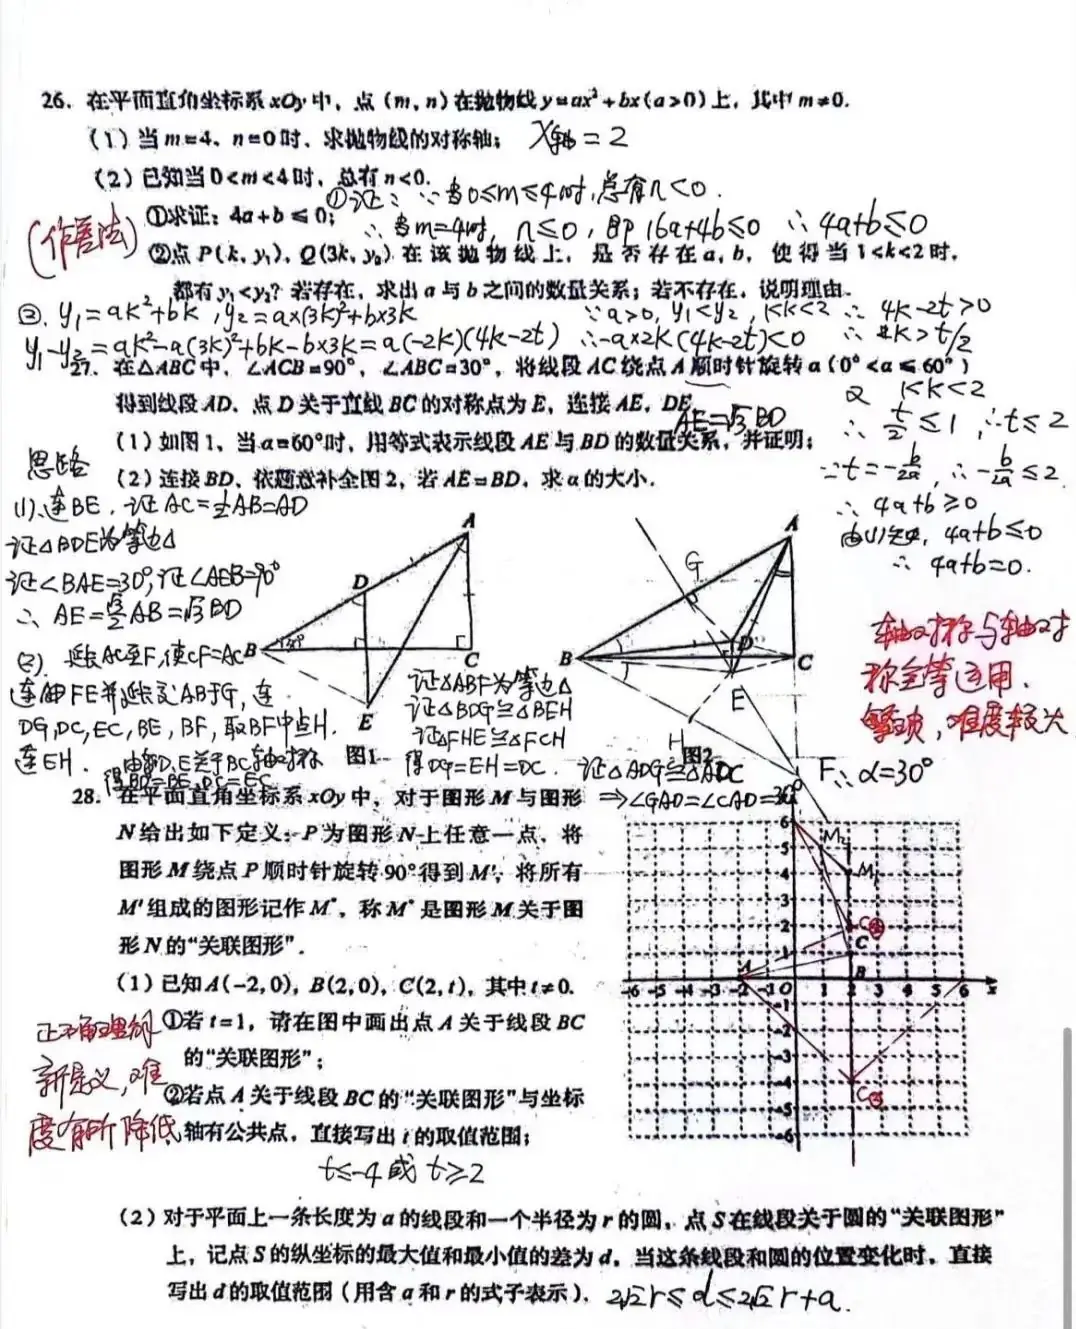 26. 在平面直角坐标系xOy中，点(m, n)在抛物线y=ax²+bx(a>0)上，其中m≠0.
(1) 当m=4，n=0时，求抛物线的对称轴； X轴=2
(2) 已知当0<m<4时，总有n<0.
①证: ∵当0≤m≤4时,总有n<0.
①求证：4a+b≤0；
∴当m=4时, n≤0, 即16a+4b≤0 ∴4a+b≤0
(作差法)
②点P(k, y₁)，Q(3k, y₂)在该抛物线上，是否存在a, b，使得当1<k<2时，
都有y₁<y₂？若存在，求出a与b之间的数量关系；若不存在，说明理由.
②. y₁=ak²+bk, y₂=a×(3k)²+b×3k
∵a>0, y₁<y₂, 1<k<2 ∴4k-2t>0
y₁-y₂=ak²-a(3k)²+bk-b×3k=a(-2k)(4k-2t) ∴-a×2k(4k-2t)<0 ∴k>t/2
27. 在△ABC中，∠ACB=90°，∠ABC=30°，将线段AC绕点A顺时针旋转α(0°<α≤60°)
得到线段AD. 点D关于直线BC的对称点为E，连接AE，DE.
AE=√3BD
(1) 如图1，当α=60°时，用等式表示线段AE与BD的数量关系，并证明；
(2) 连接BD，依题意补全图2，若AE=BD，求α的大小.
又 1<k<2
∴t/2≤1, ∴t≤2
∵t=-b/2a, ∴-b/2a≤2
∴4a+b≥0
由(1)知, 4a+b≤0
∴4a+b=0.
思路
(1).连BE, 证AC=½AB=AD
证△BDE为等边△
证∠BAE=30°,证∠AEB=90°
∴AE=√3/2AB=√3BD
(2). 延长AC至F,使CF=AC
连FE并延长交AB于G, 连
DG,DC,EC,BE,BF,取BF中点H.
连EH. 由D,E关于BC轴对称
得BD=BE,DC=EC
A
D
30°
B
C
E
图1
证△ABF为等边△
证△BDG≌△BEH
证△FHE≌△FCH
得DG=EH=DC.
A
G
D
B
C
E
H
图2
F
证△ADG≌△ADC
⇒∠GAD=∠CAD=30°
∴α=30°
轴对称与轴对
称全等运用.
繁琐,难度较大
28. 在平面直角坐标系xOy中，对于图形M与图形
N给出如下定义：P为图形N上任意一点，将
图形M绕点P顺时针旋转90°得到M′，将所有
M′组成的图形记作M″，称M″是图形M关于图
形N的“关联图形”.
(1) 已知A(-2, 0)，B(2, 0)，C(2, t)，其中t≠0.
①若t=1，请在图中画出点A关于线段BC
的“关联图形”；
②若点A关于线段BC的“关联图形”与坐标
轴有公共点，直接写出t的取值范围；
t≤-4或t≥2
正确理解
新定义,难
度有所降低
6
5
4
3
2
1
M₂
M₁
C
A
B
-6 -5 -4 -3 -2 -1 O 1 2 3 4 5 6 x
-1
-2
-3
-4
-5
-6
(2) 对于平面上一条长度为a的线段和一个半径为r的圆，点S在线段关于圆的“关联图形”
上，记点S的纵坐标的最大值和最小值的差为d，当这条线段和圆的位置变化时，直接
写出d的取值范围（用含a和r的式子表示）. 2√2r≤d≤2√2r+a.